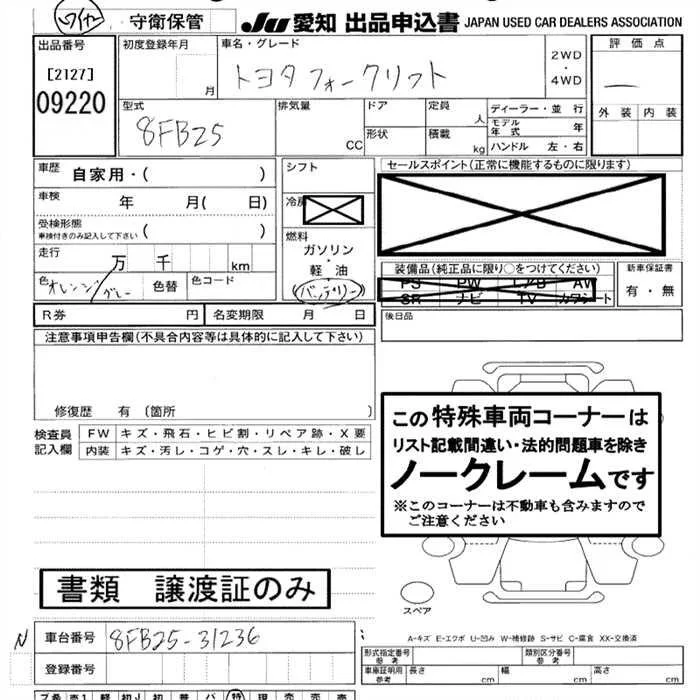 ワイヤー 守衛保管 JU 愛知 出品申込書 JAPAN USED CAR DEALERS ASSOCIATION
出品番号 初度登録年月 車名・グレード 2WD 評価点
[2127] 月 トヨタ フォークリフト ・ —
09220 4WD 外装 内装
型式 排気量 ドア 定員 人 ディーラー・並行
8FB25 CC 形状 積載 kg モデル年式 年
ハンドル 左・右
車歴 自家用・( ) シフト セールスポイント(正常に機能するものに限ります)
車検 年 月( 日) 冷房
受検形態 ( )
車検付きのみ記入して下さい
燃料
走行 万 千 km ガソリン 装備品(純正品に限り○をつけてください) 新車保証書
軽・油 PS PW エアB AV 有・無
色 オレンジ/グレー 色替 色コード バッテリー SR ナビ TV カワシート
R券 円 名変期限 月 日 後日品
注意事項申告欄(不具合内容等は具体的に記入して下さい)
修復歴 有 〔箇所 〕
この特殊車両コーナーは
リスト記載間違い・法的問題車を除き
ノークレームです
※このコーナーは不動車も含みますので
ご注意ください
検査員 FW キズ・飛石・ヒビ割・リペア跡・X要
記入欄 内装 キズ・汚レ・コゲ・穴・スレ・キレ・破し
書類 譲渡証のみ
スペア
A-キズ E-エクボ U-凹み W-補修跡 S-サビ C-腐食 XX-交換済
N 車台番号 8FB25-31236
登録番号
形式指定番号 参考 類別区分番号 参考
車庫証明用 参考 長さ cm 幅 cm 高さ cm